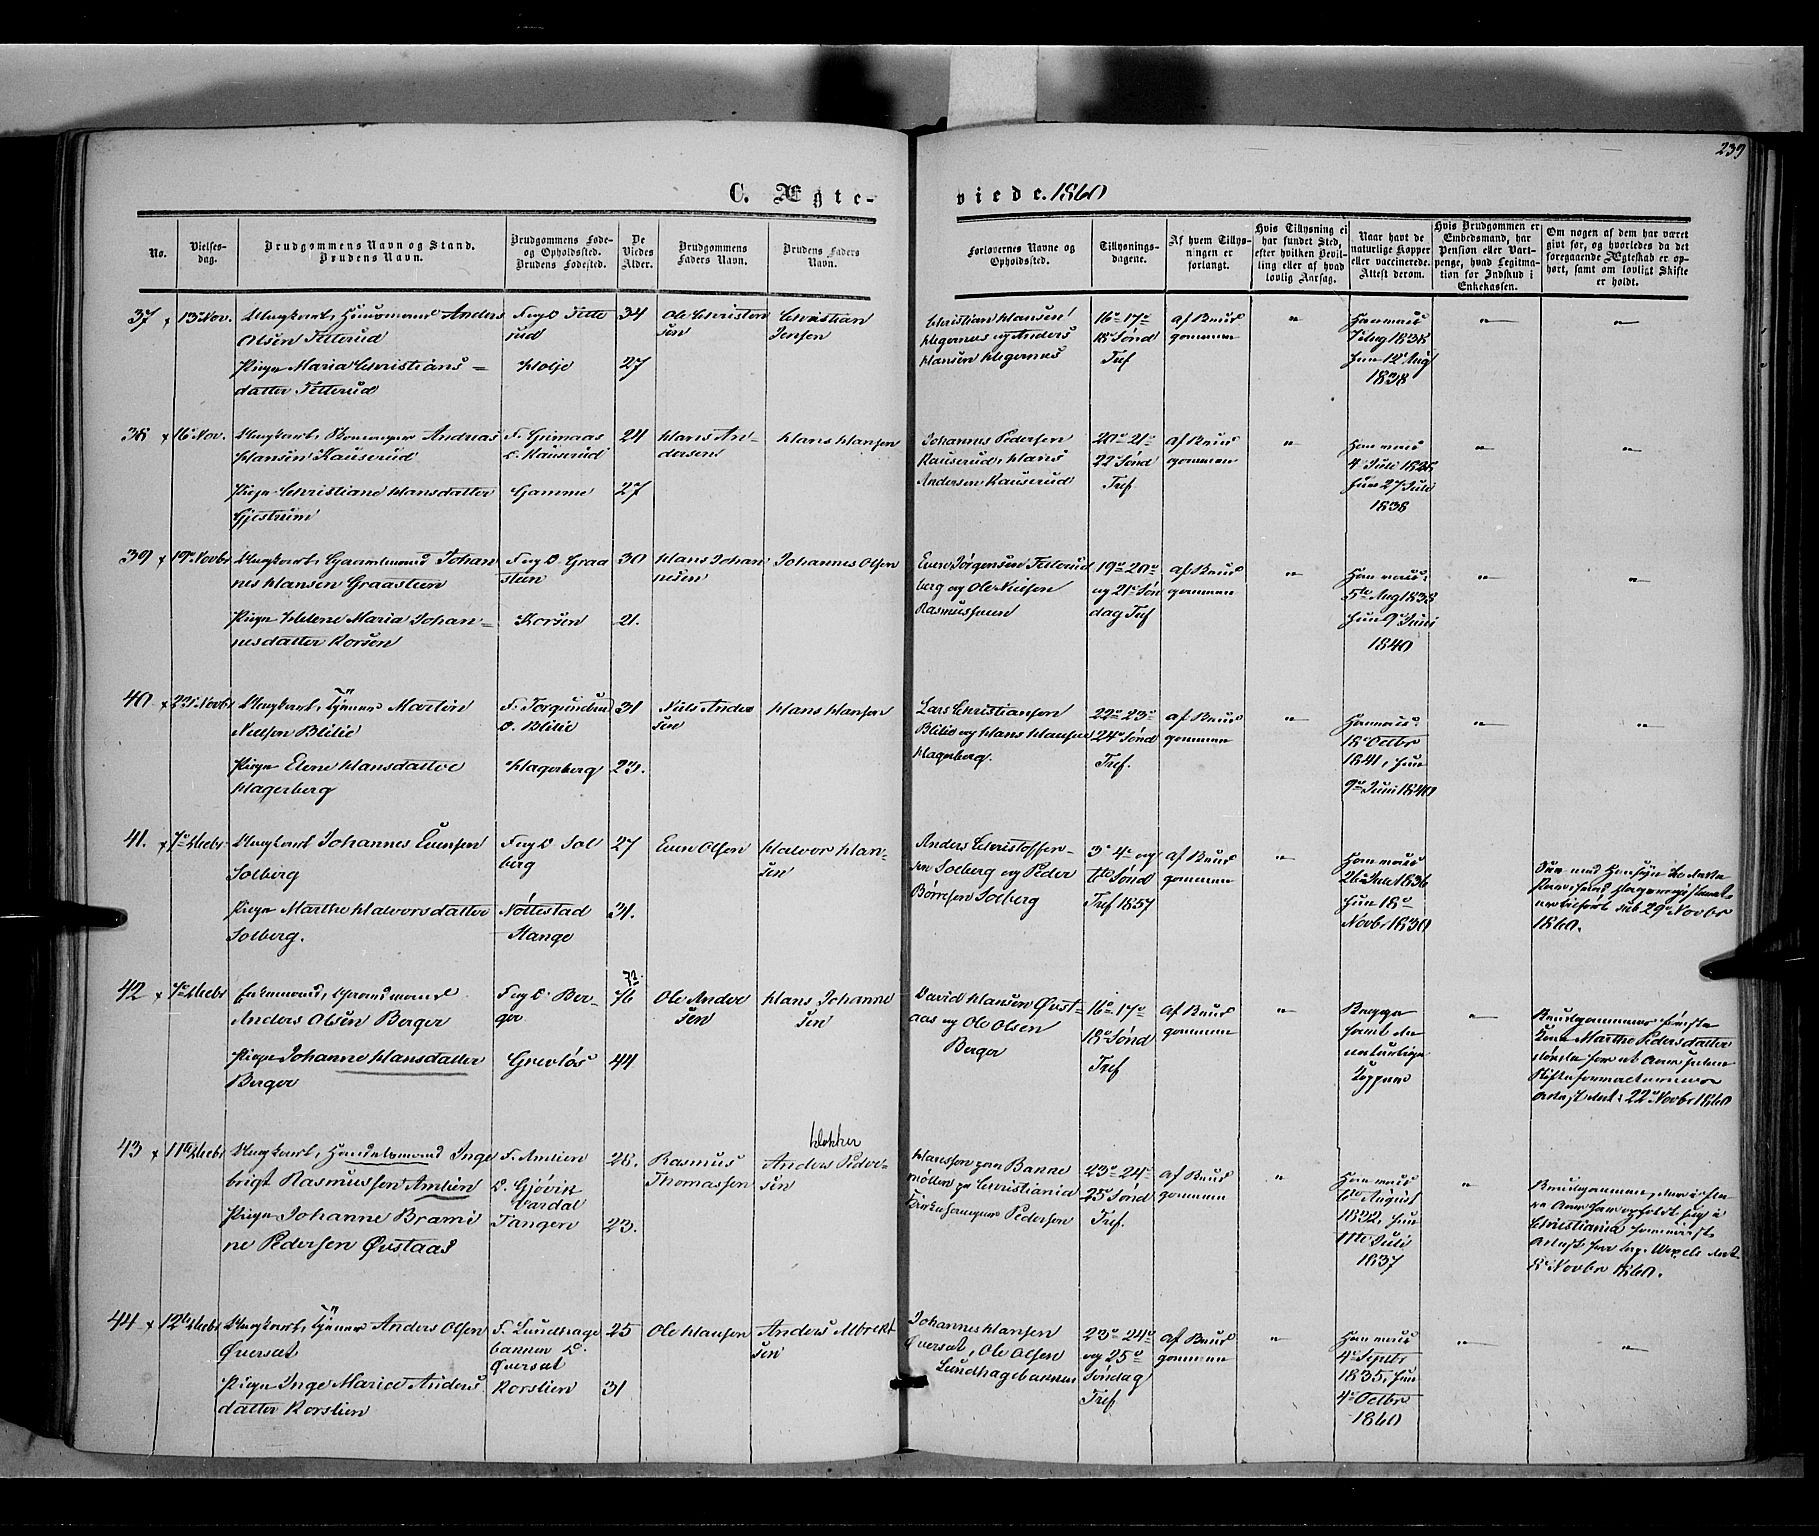 239
C. Ægte-
viede. 1860
No.
Vielses-
dag.
Brudgommens Navn og Stand.
Brudens Navn.
Brudgommens Føde-
og Opholdssted.
Brudens Fødested.
De
Viedes
Alder.
Brudgommens
Faders Navn.
Brudens Faders
Navn.
Forlovernes Navne og
Opholdssted.
Tillysnings-
dagene.
Af hvem Tillys-
ningen er
forlangt.
Hvis Tillysning ei
har fundet Sted,
efter hvilken Bevil-
ling eller af hvad
lovlig Aarsag.
Naar havt de
naturlige Kopper
eller vaccinerede.
Attest derom.
Hvis Brudgommen er
Embedsmand, har
Pension eller Vart-
penge, hvad Legitima-
tion for Indskud i
Enkekassen.
Om nogen af dem har været
gift før, og hvorledes da det
foregaaende Ægteskab er op-
hørt, samt om lovligt Skifte
er holdt.
37
13 Nov.
Ungkarl, Huusmand Anders
Olsen Tetterud
Pigen Maria Christians-
datter Tetterud
F. og O. Tette
rud
Holje
34
27
Ole Christen
sen
Christian
Jensen
Christian Hansen
Hegernes og Anders
Hansen Hegernes
16de 17de
18de Sønd
Tref
af Brud
gommen
"
1838
Hun 12 Aug
1838
"
"
38
16 Nov.
Ungkarl, Andreas
Hansen Kauserud
Pigen Christiane Hansdatter
Gjestrum
F. Grimaas
O. Kauserud
Gamme
24
27
Hans An-
dersen
Hans Hansen
Johannes Pedersen
Kauserud, Hans
Andersen Kauserud
20de 21de
22de Sønd
Tref
af Brud
gommen
"
4 Juli
Hun 27 Juli
1838
"
"
39
19de Novbr
Ungkarl, Gaardmand Johan
nes Hansen Graasteen
Pigen Helene Maria Johan-
nesdatter Korsen
F. og O. Graa
steen
Korsen
30
21.
Hans Johan
nesen
Johannes Olsen
Even Jørgensen
berg og Ole Nielsen
Rasmussveen
19de 20de
og 21de Søn
dag Tref
af Brud
gommen
"
5te Aug 1838
Hun 9de Juni
1840
"
"
40
22de Novbr
Ungkarl, Tjener Martin
Nielsen Blilie
Pigen Elene Hansdatter
Hagerberg
O. Blilie
Hagerberg
31
23.
Niels Ander
sen
Hans Hansen
Lars Christiansen
Blilie og Hans Hansen
Hagerberg.
22de 23de
24de Sønd
Tref.
af Brud
gommen
"
18de Octbr
1841, Hun
9de Juni 1840
"
"
41.
7de Decbr
Ungkarl Johannes Evensen
Solberg
Pigen Marthe Halvorsdatter
Solberg.
F. og O. Sol
berg
Nøttestad
Stange
27
31.
Even Olsen
Halvor Han-
sen
Anders Christoffer-
sen Solberg og Peder
Børresen Solberg
3de 4de og
5te Sønd
Tref 1857
af Brud
gommen
"
26de Juli 1836
Hun 18de
Novbr 1830
29de Novbr
1860.
42
7de Decbr
Enkemand, Gaardmand
Anders Olsen Berger
Pigen Johanne Hansdatter
Berger
F. og O. Ber-
ger
Grevløs
73.
76
44
Ole Ander
sen
Hans Johanne
sen
David Hansen Øvst-
aas og Ole Olsen
Berger
16de 17de
18de Sønd
Tref
af Brud
gommen
"
Begge
havt de
naturlige
Kopper
"
Brudgommens første
Kone Marthe Pedersdatter
22de Novbr 1860
43
11te Decbr
Ungkarl, Handelsmand Inge
brigt Rasmussen Amlien
Pigen Johanne Brami
ne Pedersen Øvstaas
F. Amlien
O. Gjøvik
Vardal
Tangen
28.
23.
Rasmus
Thomassen
Klokker
Anders Peder-
sen
Hansson paa Banne
møllen pr Christiania
Pedersen
23de 24de
25de Sønd
Tref.
af Brud
gommen
"
6te August
1832, Hun
11te Juli
1837
"
Brudgommen
Christiania
8de Novbr 1860.
44
12te Decbr
Ungkarl, Tjener Anders Olsen
Øversæt
Pigen Inge Marie Anders
datter Korslien
F. Lundhage
bakken O.
Øversæt
Korslien
25
31
Ole Hansen
Anders Albrekt
sen
Johannes Hansen
Øversæt, Ole Olsen
Lundhagebakken
23de 24de
og 25de
Søndag
Tref
af Brud
gommen
"
4de Septbr
1835, Hun
4de Octbr
1860
"
"